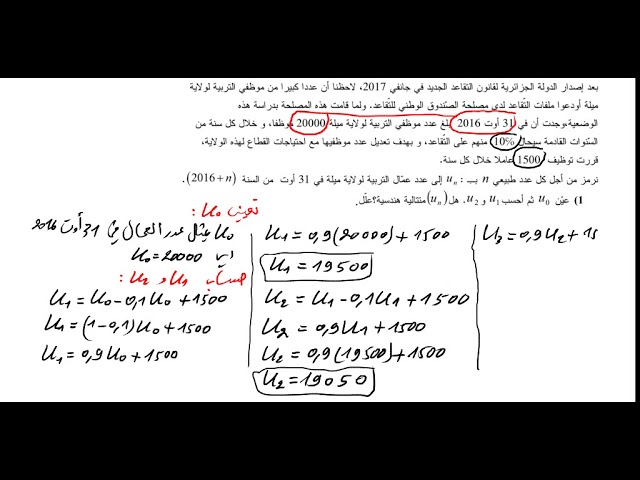 بعد إصدار الدولة الجزائرية لقانون التقاعد الجديد في جانفي 2017، لاحظنا أن عددا كبيرا من موظفي التربية لولاية
ميلة أودعوا ملفات التقاعد لدى مصلحة الصندوق الوطني للتقاعد. ولما قامت هذه المصلحة بدراسة هذه
الوضعية،وجدت أن في 31 أوت 2016 بلغ عدد موظفي التربية لولاية ميلة 20000 موظفا، و خلال كل سنة من
السنوات القادمة سيحال 10% منهم على التقاعد، و بهدف تعديل عدد موظفيها مع احتياجات القطاع لهذه الولاية،
قررت توظيف 1500 عاملا خلال كل سنة.
نرمز من أجل كل عدد طبيعي n بـ : uₙ إلى عدد عمّال التربية لولاية ميلة في 31 أوت من السنة (2016+n).
1) عيّن u₀ ثم أحسب u₁ و u₂. هل (uₙ) متتالية هندسية؟علّل.
تعيين u₀ :
u₀ يمثل عدد العمال في 31 أوت 2016
أي u₀=20000
حساب u₁ و u₂ :
u₁=u₀-0,1u₀+1500
u₁=(1-0,1)u₀+1500
u₁=0,9u₀+1500
u₁=0,9(20000)+1500
u₁=19500
u₂=u₁-0,1u₁+1500
u₂=0,9u₁+1500
u₂=0,9(19500)+1500
u₂=19050
u₃=0,9u₂+15